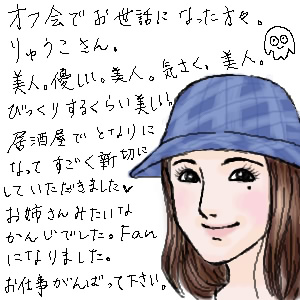 オフ会でお世話になった方々。
りゅうこさん。
美人。優しい。美人。気さく。美人。
びっくりするくらい美しい。
居酒屋でとなりに
なってすごく新切に
していただきました♥
お姉さんみたいな
かんじでした。Fan
になりました。
お仕事がんばって下さい。